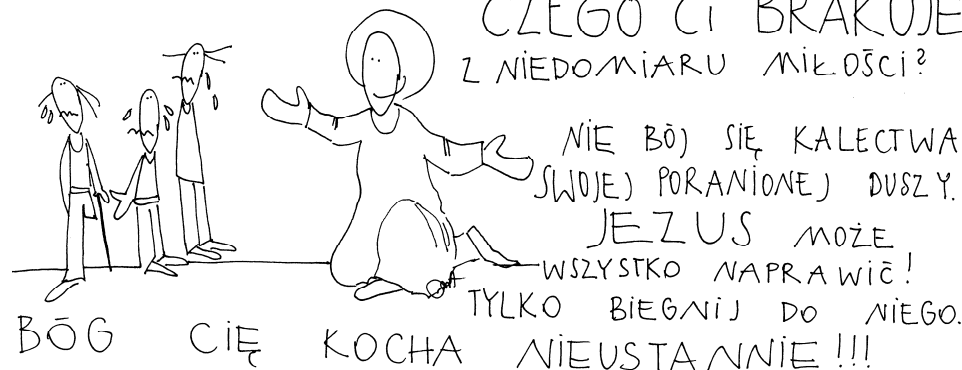 CZEGO CI BRAKUJE
Z NIEDOMIARU MIŁOŚCI?
NIE BÓJ SIĘ KALECTWA
SWOJEJ PORANIONEJ DUSZY.
JEZUS MOŻE
WSZYSTKO NAPRAWIĆ!
TYLKO BIEGNIJ DO NIEGO.
BÓG CIĘ KOCHA NIEUSTANNIE!!!